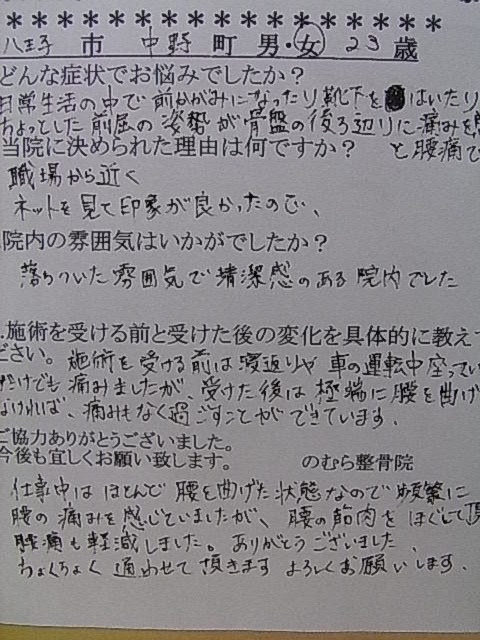 ＊＊＊＊＊＊＊＊＊＊＊＊＊＊＊＊＊＊
八王子 市 中野 町 男・女 23 歳
どんな症状でお悩みでしたか？
日常生活の中で前かがみになったり靴下をはいたり
ちょっとした前屈の姿勢が骨盤の後ろ辺りに痛みを
当院に決められた理由は何ですか？ と腰痛で
職場から近く
ネットを見て印象が良かったので、
院内の雰囲気はいかがでしたか？
落ちついた雰囲気で清潔感のある院内でした
.施術を受ける前と受けた後の変化を具体的に教え
ださい。 施術を受ける前は寝返りや車の運転中座ってい
だけでも痛みましたが、受けた後は極端に腰を曲げ
なければ、痛みもなく過ごすことができています。
ご協力ありがとうございました。
今後も宜しくお願い致します。 のむら整骨院
仕事中はほとんど腰を曲げた状態なので頻繁に
腰の痛みを感じていましたが、腰の筋肉をほぐして頂
腰痛も軽減しました。ありがとうございました、
ちょくちょく通わせて頂きます よろしくお願いします.